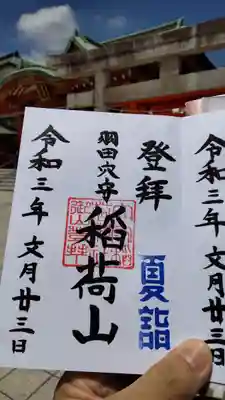 登拝
夏詣
羽田穴守
稲荷山
令和三年 文月廿三日
令和三年 文月廿三日